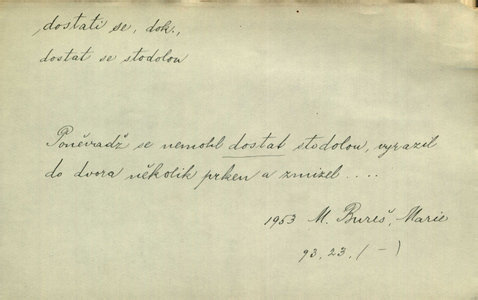 dostati se, dok.,
dostat se stodolou
Poněvadž se nemohl dostat stodolou, vyrazil
do dvora několik prken a zmizel ....
1953 M. Bureš, Marie
93, 23, (-)